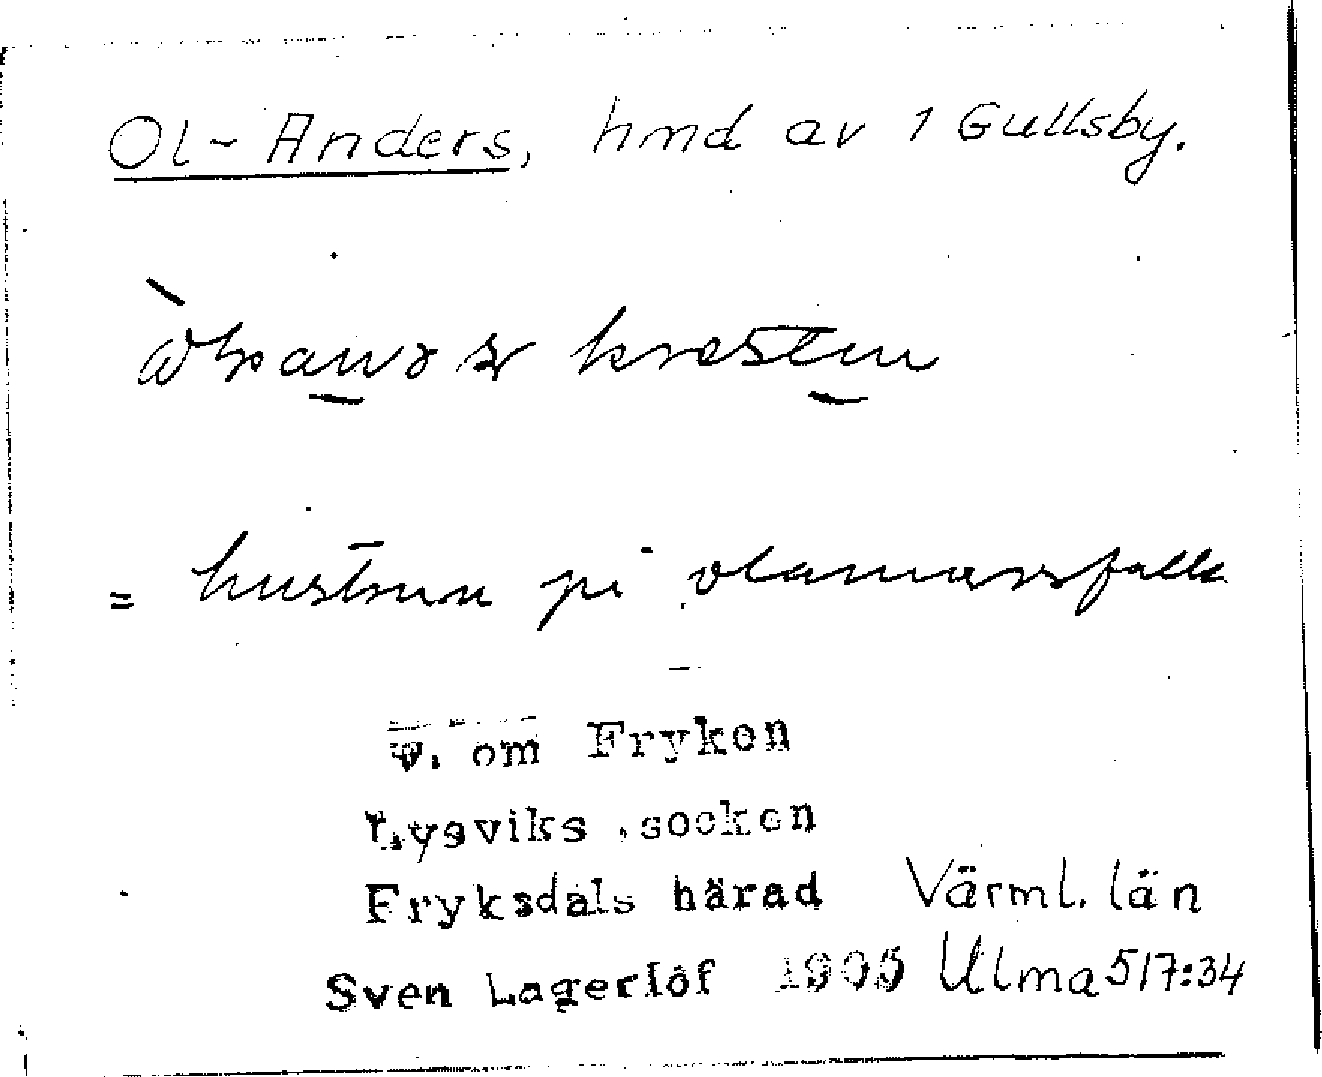 Ol-Anders, hmd av 1 Gullsby.
= hustrun på olannersfalle
v. om Fryken
Lysviks socken
Fryksdals härad Värml. län
Sven Lagerlöf 1905 Ulma 517:34